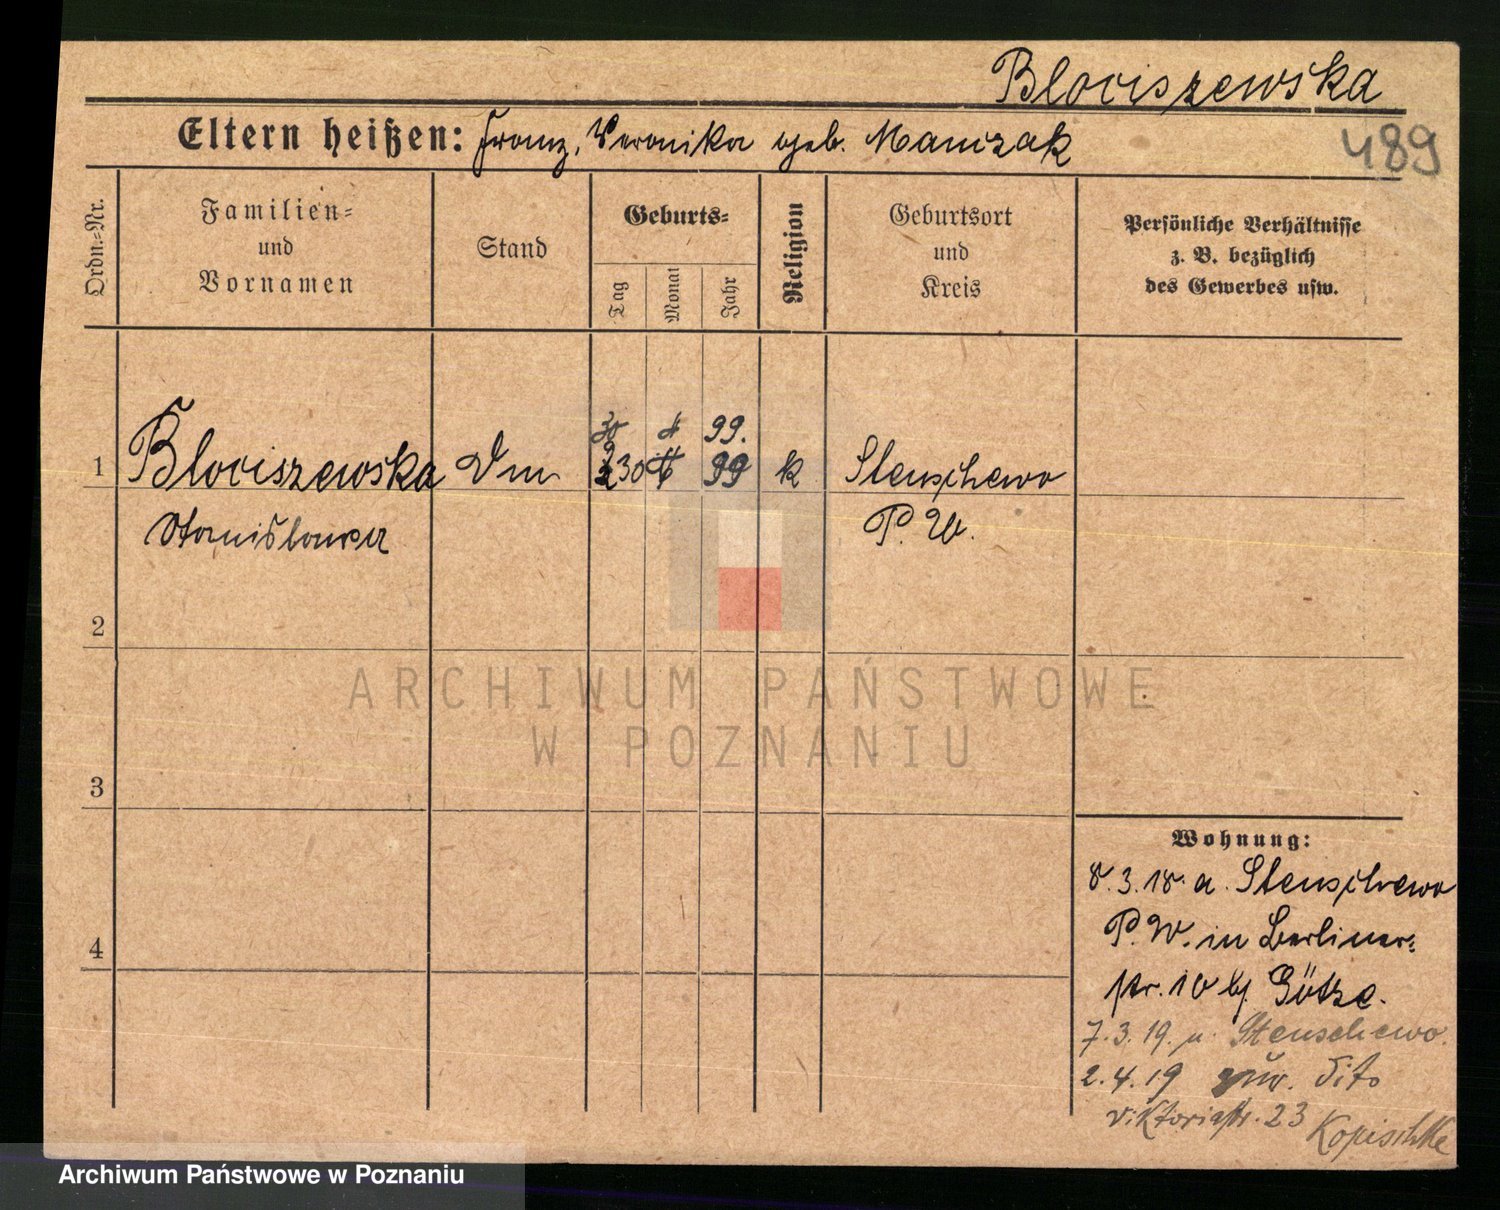 Blociszewska
Eltern heißen: Franz, Veronika geb. Maniczak
489
Ordn.-Nr.
Familien-
und
Vornamen
Stand
Geburts-
Tag
Monat
Jahr
Religion
Geburtsort
und
Kreis
Persönliche Verhältnisse
z. B. bezüglich
des Gewerbes usw.
30 4 99.
1 Blociszewska Dm 30 99 k Stenschewo
Stanislawa P. W.
2
ARCHIWUM PAŃSTWOWE
W POZNANIU
3
4
Wohnung:
8.3.18. a. Stenschewo
P. W. in Berliner-
str. 10 b/ Götze.
7.3.19. n. Stenschewo.
2.4.19 zur. dito
Viktoriastr. 23 Kopischke
Archiwum Państwowe w Poznaniu